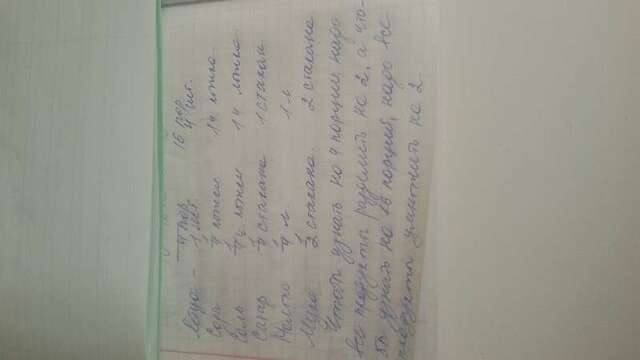 4 пор 16 пор
Яйцо - 1 шт. 4 шт.
Соды 1/4 ложки 1 ч ложка
Соль 1/4 ложки 1 ч ложка
Сахар 1/4 стакана 1 стакан
Молоко 1/4 л 1 л
Мука 1/2 стакана. 2 стакана
Чтобы узнать на 4 порции, надо
все продукты разделить на 2, а что-
бы узнать на 16 порций, надо все
продукты умножить на 2